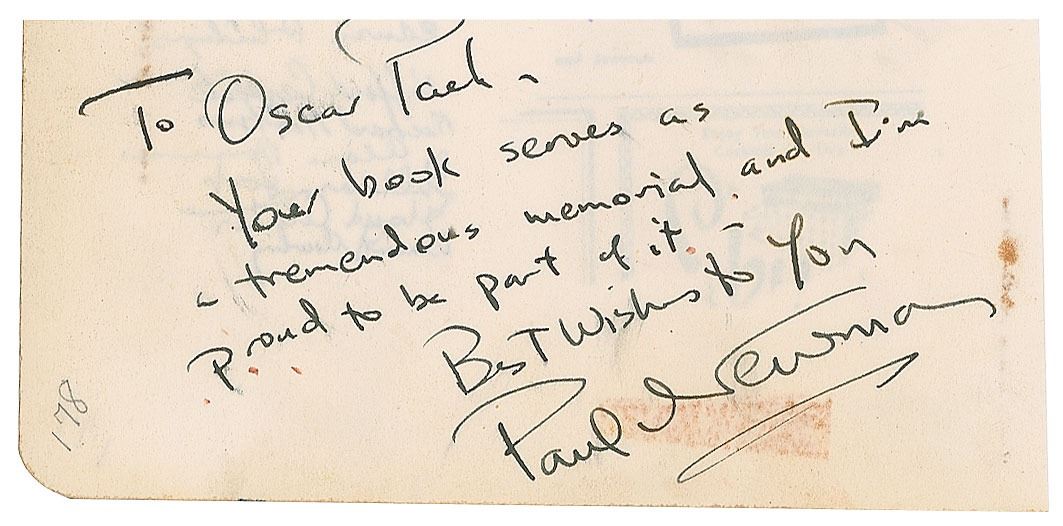 To Oscar Tack -
Your book serves as
a tremendous memorial and I'm
Proud to be part of it. -
Best Wishes to You
Paul Newman
178